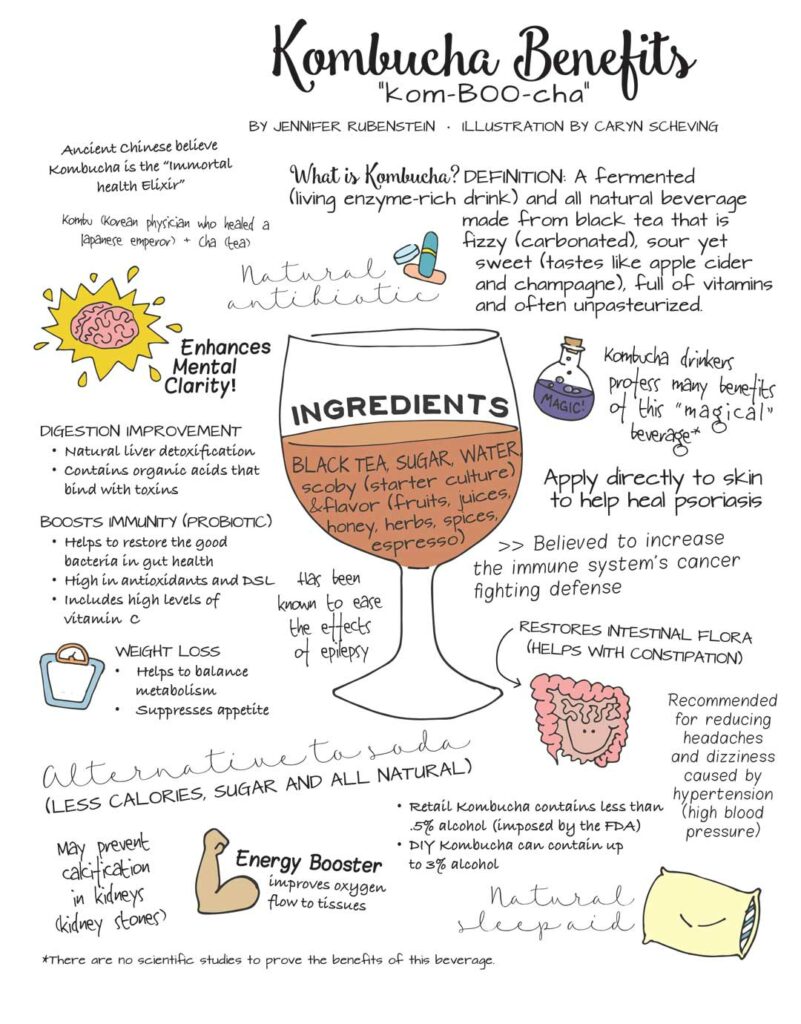 Kombucha Benefits
"kom-BOO-cha"
BY JENNIFER RUBENSTEIN · ILLUSTRATION BY CARYN SCHEVING
Ancient Chinese believe
Kombucha is the "Immortal
health Elixir"
Kombu (Korean physician who healed a
Japanese emperor) + Cha (tea)
What is Kombucha? DEFINITION: A fermented
(living enzyme-rich drink) and all natural beverage
made from black tea that is
fizzy (carbonated), sour yet
sweet (tastes like apple cider
and champagne), full of vitamins
and often unpasteurized.
Natural
antibiotic
Enhances
Mental
Clarity!
INGREDIENTS
BLACK TEA, SUGAR, WATER,
scoby (starter culture)
&flavor (fruits, juices,
honey, herbs, spices,
espresso)
MAGIC!
Kombucha drinkers
profess many benefits
of this "magical"
beverage*
DIGESTION IMPROVEMENT
• Natural liver detoxification
• Contains organic acids that
bind with toxins
Apply directly to skin
to help heal psoriasis
BOOSTS IMMUNITY (PROBIOTIC)
• Helps to restore the good
bacteria in gut health
• High in antioxidants and DSL
• Includes high levels of
vitamin C
>> Believed to increase
the immune system's cancer
fighting defense
Has been
known to ease
the effects
of epilepsy
RESTORES INTESTINAL FLORA
(HELPS WITH CONSTIPATION)
WEIGHT LOSS
• Helps to balance
metabolism
• Suppresses appetite
Recommended
for reducing
headaches
and dizziness
caused by
hypertension
(high blood
pressure)
Alternative to soda
(LESS CALORIES, SUGAR AND ALL NATURAL)
• Retail Kombucha contains less than
.5% alcohol (imposed by the FDA)
• DIY Kombucha can contain up
to 3% alcohol
May prevent
calcification
in kidneys
(kidney stones)
Energy Booster
improves oxygen
flow to tissues
Natural
sleep aid
*There are no scientific studies to prove the benefits of this beverage.